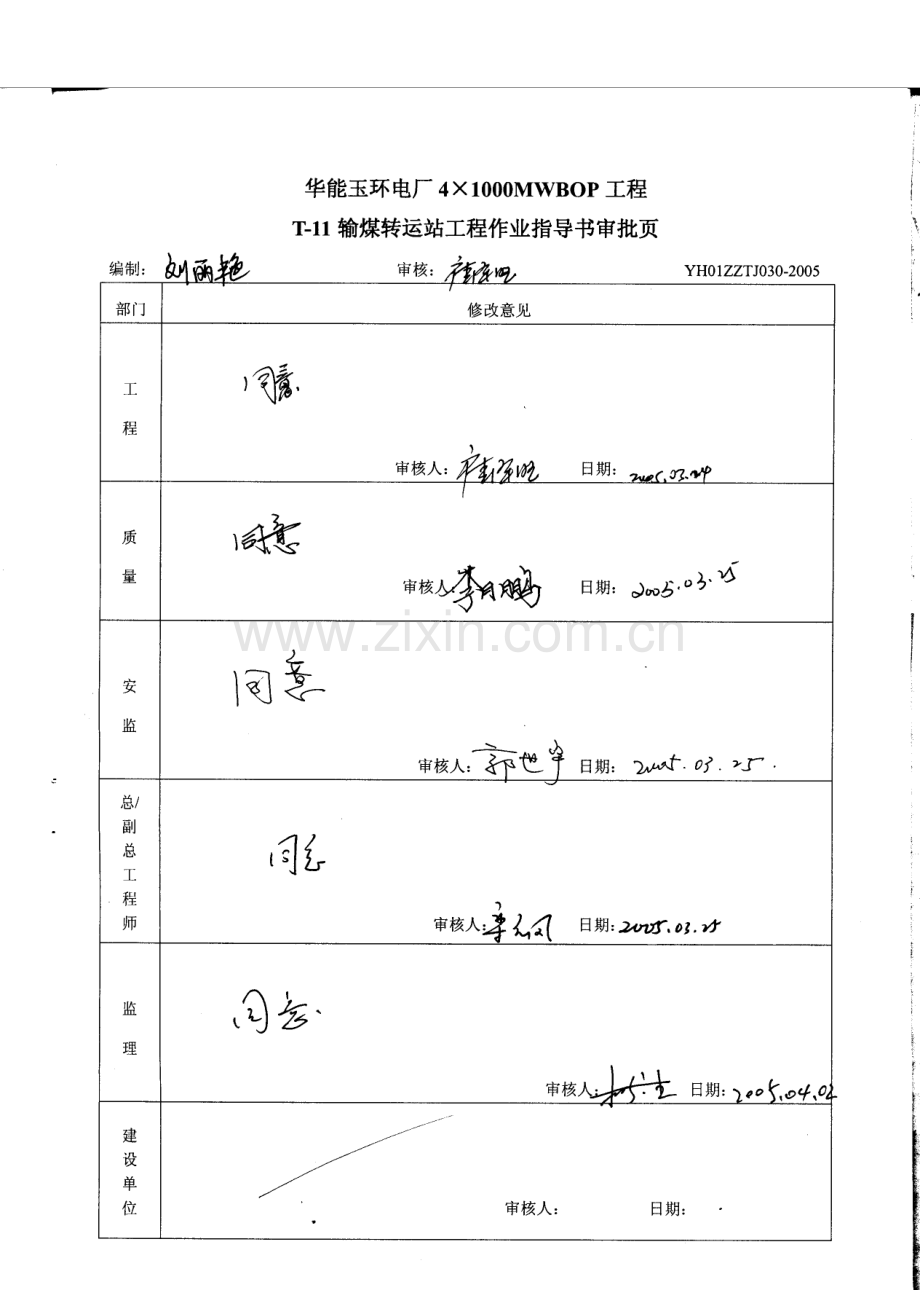 华能玉环电厂 4×1000MWBOP 工程
T-11 输煤转运站工程作业指导书审批页
编制： 刘丽艳 审核： YH01ZZTJ030-2005
部门 修改意见
工程
同意
审核人： 日期： 2005.03.24
质量
同意
审核人： 李月鹏 日期： 2005.03.25
www.zixin.com.cn
安监
同意
审核人： 郭世宇 日期： 2005.03.25.
总/副总工程师
同意
审核人： 日期： 2005.03.25
监理
同意.
审核人： 日期： 2005.04.02
建设单位
审核人： 日期：